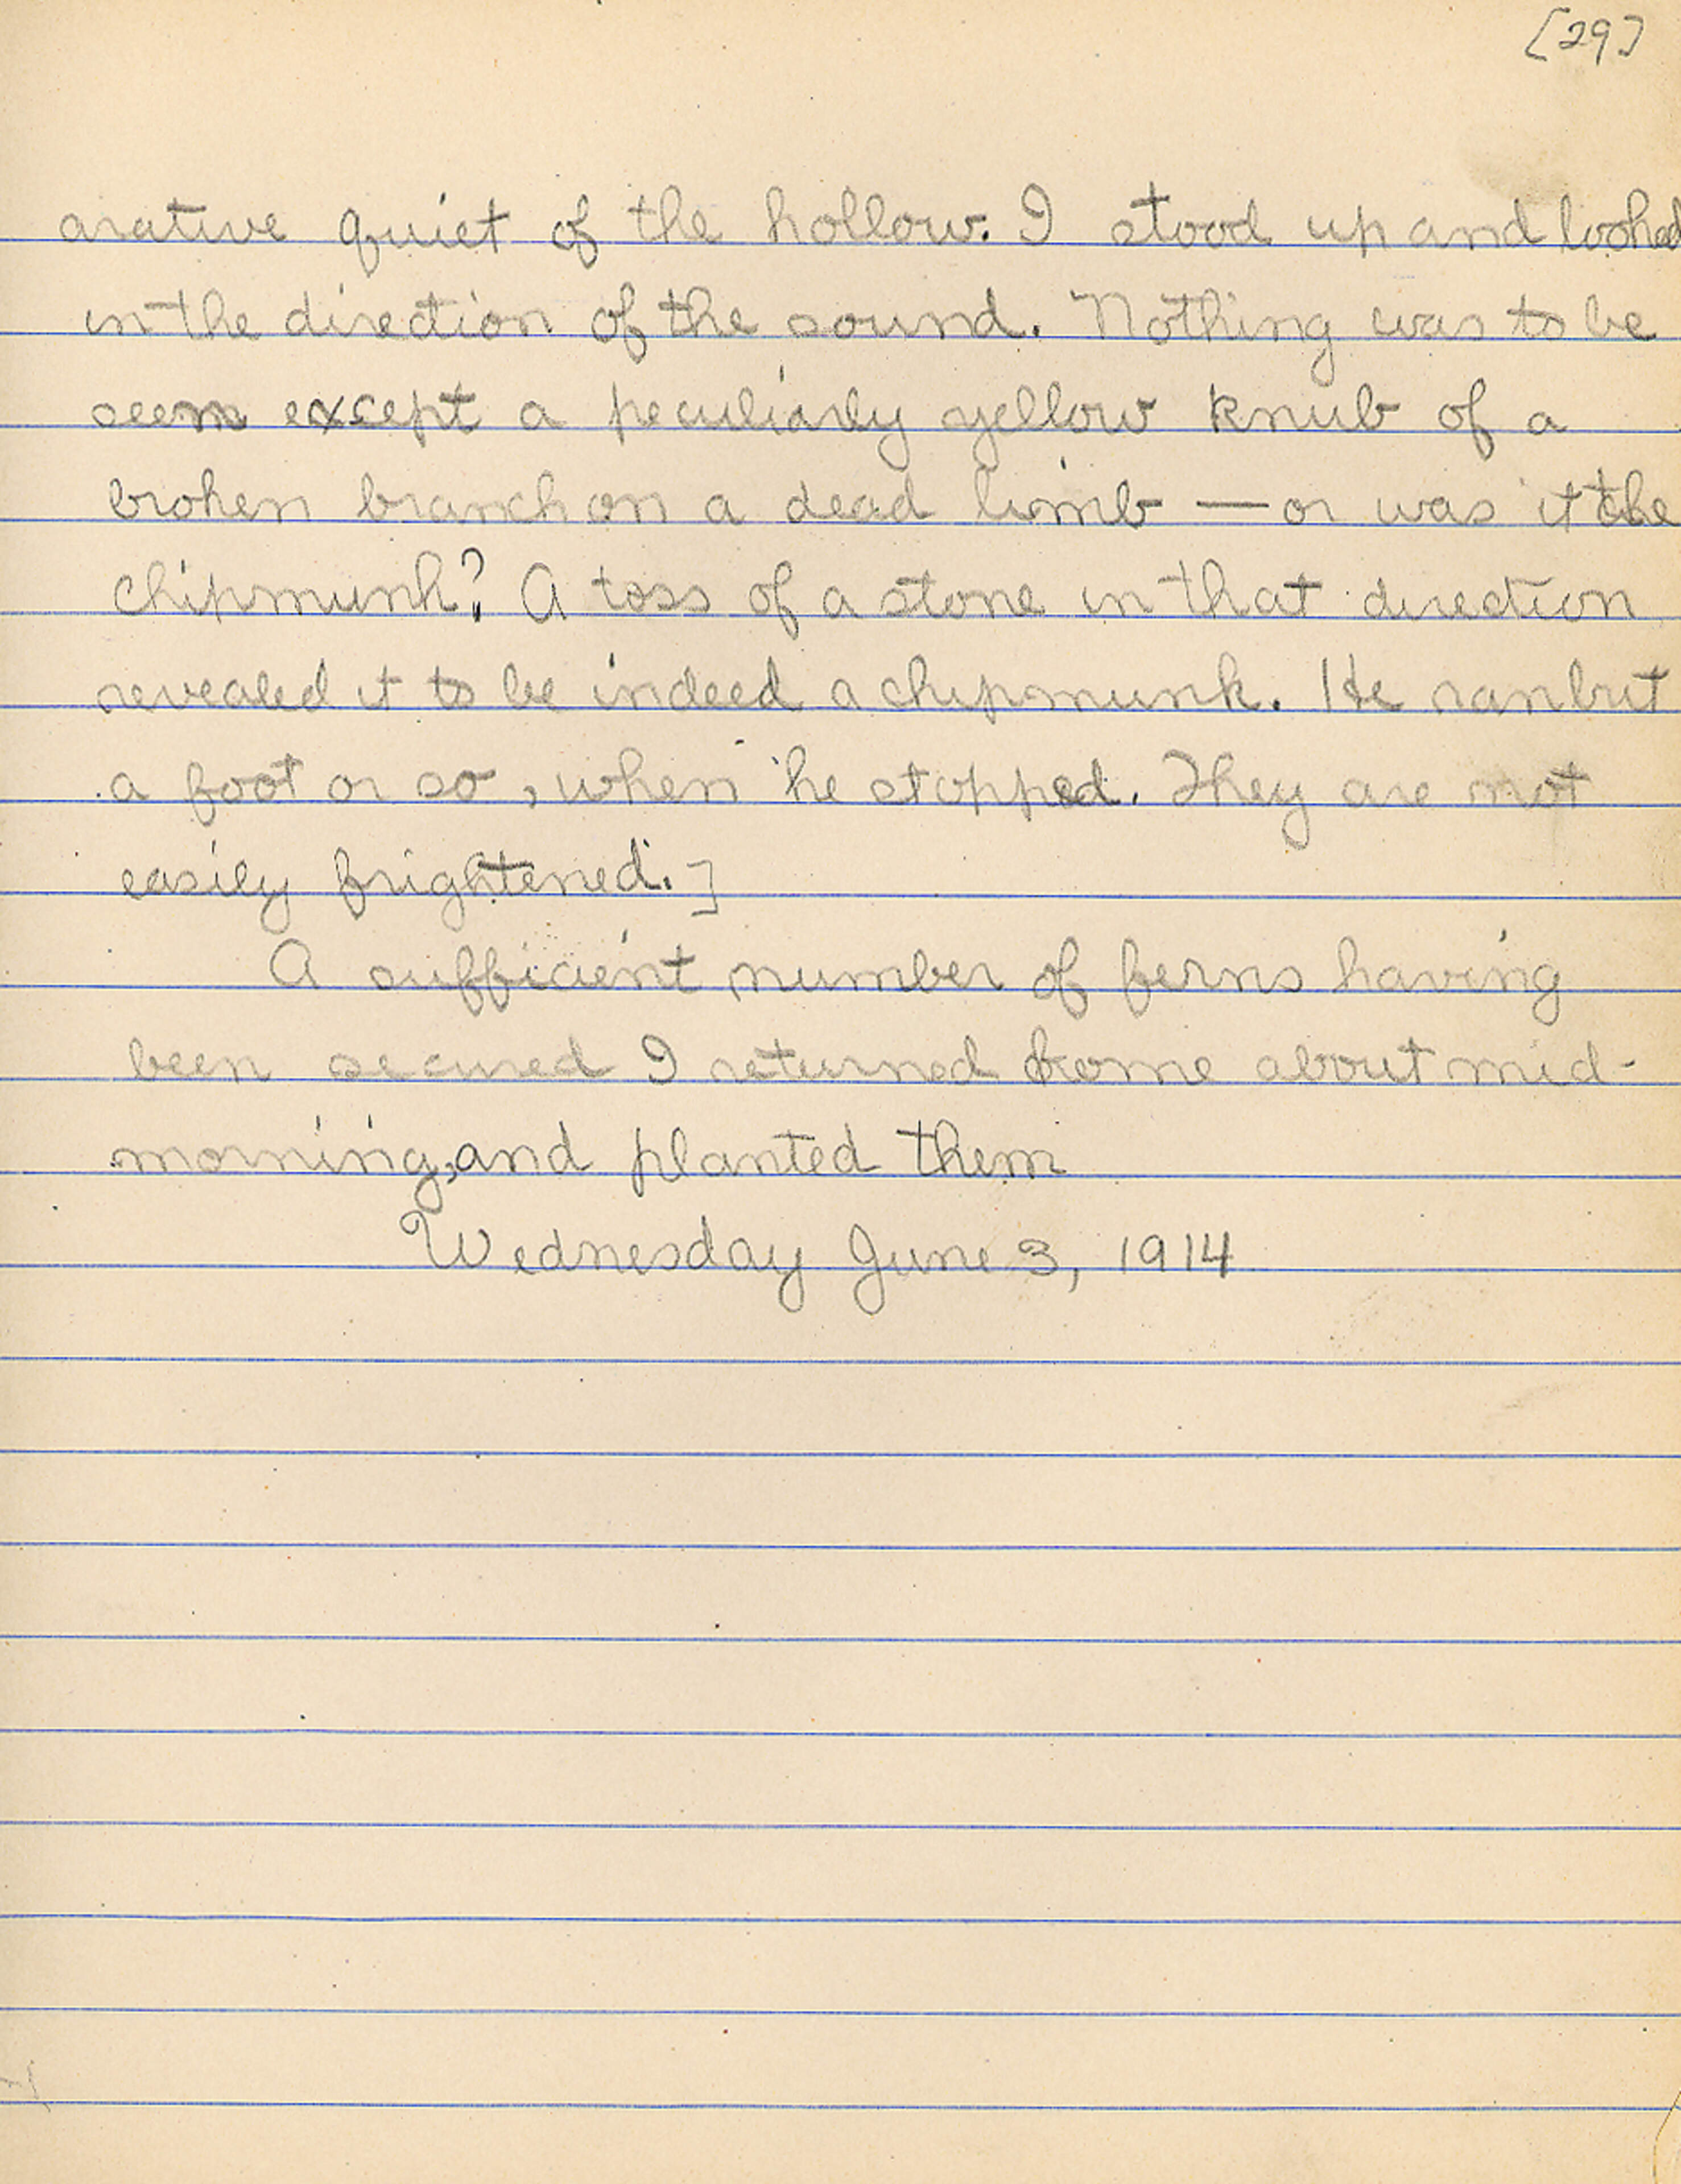 [29]
arative quiet of the hollow. I stood up and looked
in the direction of the sound. Nothing was to be
seem except a peculiarly yellow knub of a
broken branch on a dead limb — or was it the
chipmunk? A toss of a stone in that direction
revealed it to be indeed a chipmunk. He ran but
a foot or so, when he stopped. They are not
easily frightened.]
A sufficient number of ferns having
been secured I returned home about mid-
morning, and planted them
Wednesday June 3, 1914